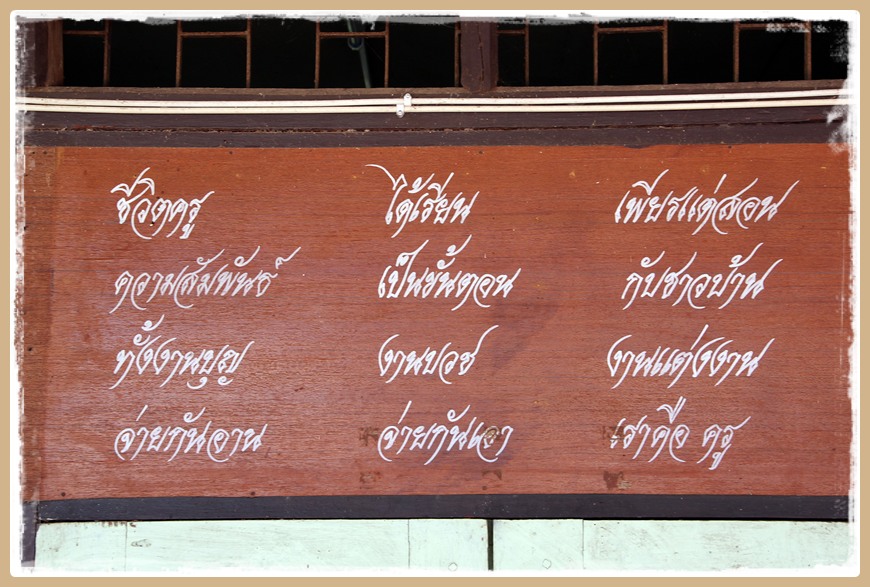 ชีวิตครู ได้เรียน เพียรแต่สอน
ความสัมพันธ์ เป็นขั้นตอน กับชาวบ้าน
ทั้งงานบุญ งานบวช งานแต่งงาน
จ่ายกันอาน จ่ายกันเอา เราคือ ครู